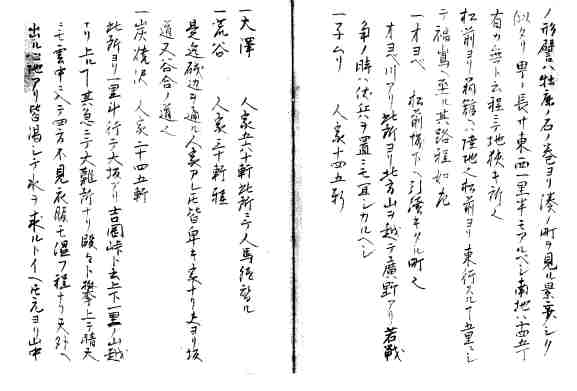 ノ形譬ハ牡鹿ノ石ノ巻ヨリ湊ノ町ヲ見ル景气シク
似タリ甲ノ長サ東西一里半モアルヘシ南地ハ一西丁
有ル無ト云程ニテ地狭キ所ヘ
松前ヨリ箱館ハ陸地ヘ松前ヨリ東行スルヿ五里ニシ
テ福嶌ヘ至ル其路程如左
一オヨベ 松前城下ヘ引續キタル町ヘ
オヨベ川アリ此所ヨリ北方山ヲ越テ廣野アリ若戦
争ノ時ハ伏兵ヲ置ニモ宜シカルヘシ
一子ムリ 人家十四五軒
一大澤 人家五六十軒此所ニテ人馬継
一荒谷 人家三十軒程
是迄砂辺ヲ通ル人家アレモ皆卑キ家ナリ夫ヨリ坂
道又谷合ノ道ヘ
一炭焼沢 人家二十四五軒
此所ヨリ一里斗行テ大坂アリ吉岡峠ト云上下一里ノ山越
ナリ上ルヿ其急ニテ大難所ナリ段々ト攀上テ晴天
ニモ雲中ニ入テ四方不見衣服モ温フ程ナリ
出ル地アリ皆渇シテ水ヲ求ルトイヘ元ヨリ山中